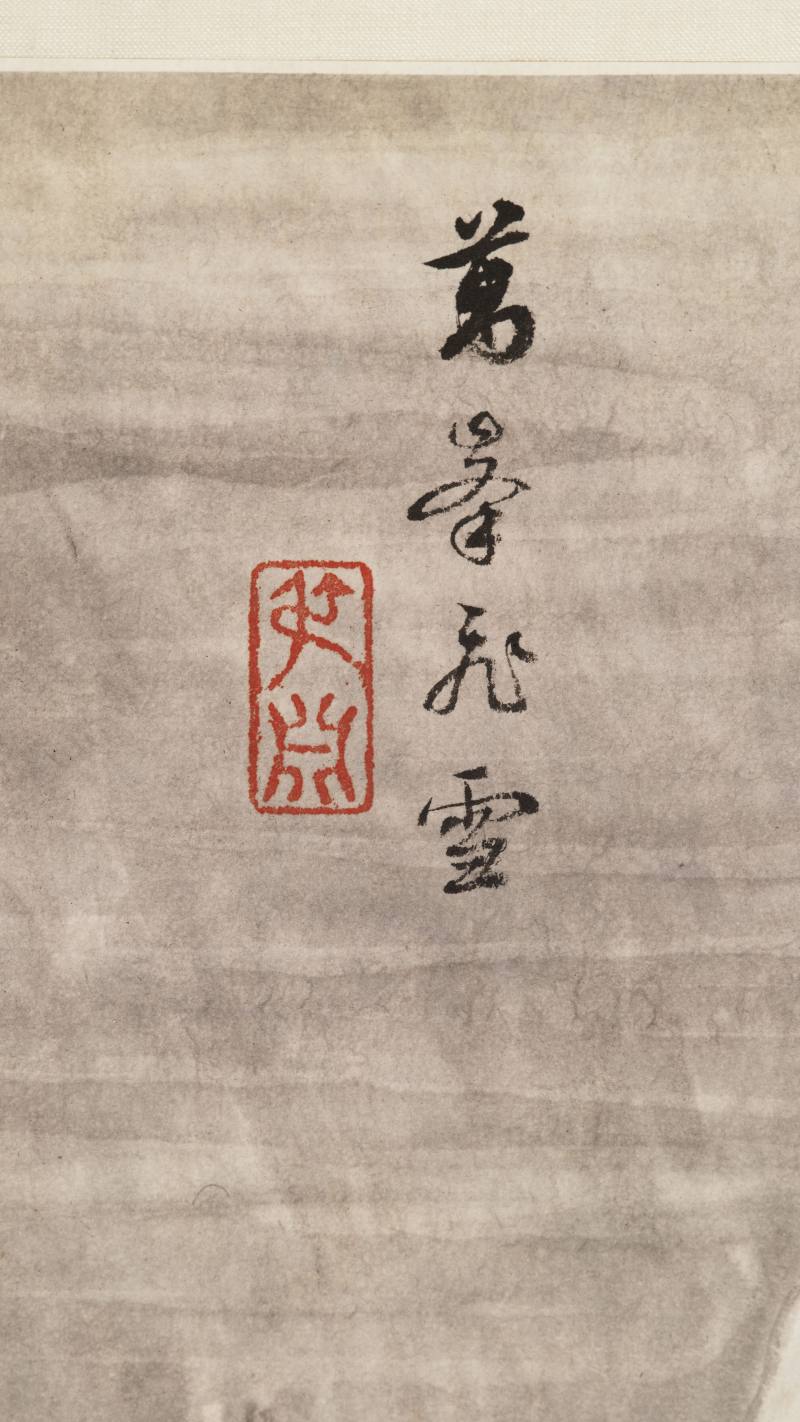 萬峯飛雪